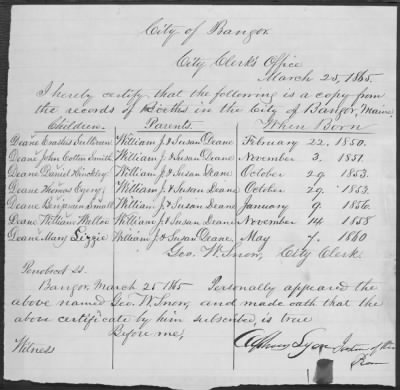 City of Bangor
City Clerk's Office
March 25, 1865.
I hereby certify that the following is a copy from
the records of Births in the City of Bangor, Maine,
Children. Parents. When Born
Deane Erastus William J. & Susan Deane February 22. 1850.
Deane John Cotton Smith William J. & Susan Deane November 3. 1851.
Deane Daniel Hinckley William J. & Susan Deane October 29. 1853.
Deane Thomas William J. & Susan Deane October 29. 1853.
Deane Benjamin William J. & Susan Deane January 9 1856.
Deane William William J. & Susan Deane November 14. 1858
Deane Mary Lizzie William J. & Susan Deane, May 7. 1860
Geo. W. Snow, City Clerk.
Penobscot ss.
Bangor March 25 1865 Personally appeared the
above named Geo. W. Snow, and made oath that the
above certificate by him subscribed, is true
Before me,
Witness
Justice of the